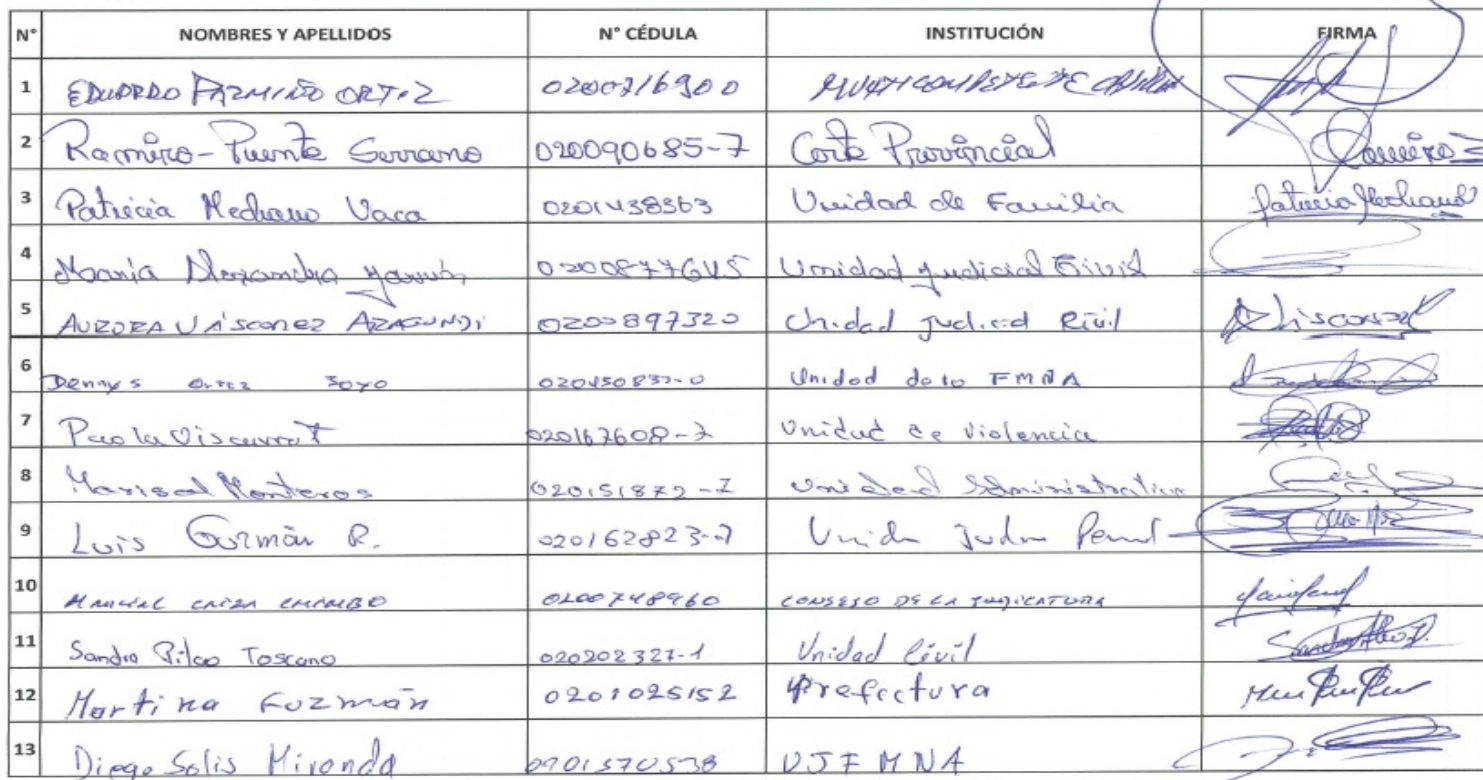 N° NOMBRES Y APELLIDOS N° CÉDULA INSTITUCIÓN FIRMA
1 EDUARDO PAZMIÑO ORTIZ 0200716900 MULTICOMPETENTE
2 Ramiro-Puente Serrano 020090685-7 Corte Provincial Ramiro
3 Patricia Mechano Vaca 0201438363 Unidad de Familia Patricia Mechano
4 María Alexandra 0200877645 Unidad Judicial Civil
5 AURORA VÁSCONEZ ARAGUNDI 0200897320 Unidad Judicial Civil
6 Dennys Ortiz 020150837-0 Unidad de la FMNA
7 Paola 020167608-7 Unidad de Violencia
8 Marisol Monteros 020151872-7 Unidad Administrativa
9 Luis Guzmán R. 020162823-7 Unida Penal
10 0200748960 CONSEJO DE LA JUDICATURA
11 Sandra Pilco Toscano 020202327-1 Unidad Civil
12 Martina Guzmán 0201025152 Prefectura
13 Diego Solis Miranda 0201570538 UJFMNA